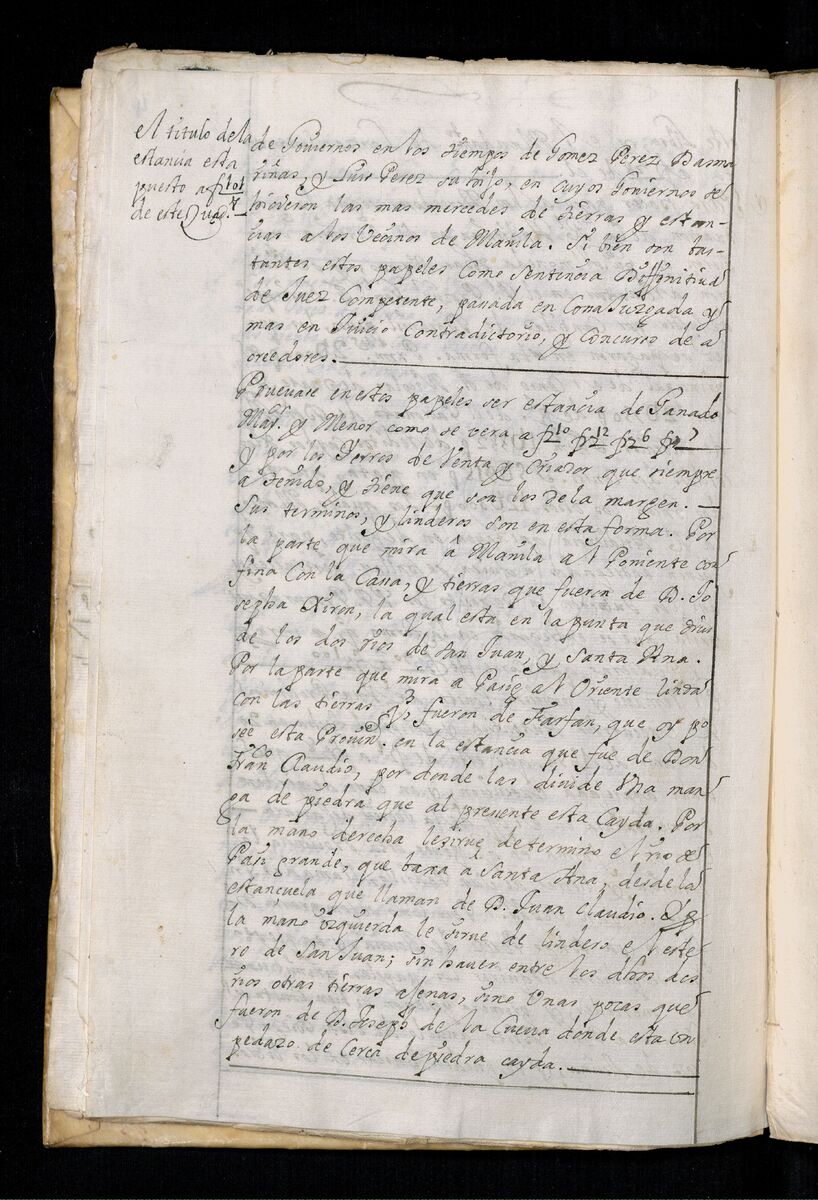 el titulo dela
estancia esta
puesto a f. 101
de este quad.º
de Goviernos en los tiempos de Gomez Perez Dasma
riñas, y Luis Perez su hijo, en cuyos Goviernos se
hicieron las mas mercedes de tierras y estan-
cias a los Vecinos de Manila. Si bien son bas-
tantes estos papeles como Sentencia Diffinitiva
de Juez Competente, pasada en Cosa Juzgada y
mas en Juicio Contradictorio, y Concurso de a
creedores.
Pruevase en estos papeles ser estancia de Ganado
Mayr. y Menor como se vera a f. 10 f. 12 f. 26
y por los Yerros de Venta y Criador que siempre
a tenido, y tiene que son los de la margen.
Sus terminos, y linderos son en esta forma. Por
la parte que mira â Manila al Poniente con
fina Con la Casa, y tierras que fueron de D. Jo
sepha Xiron, la qual esta en la punta que divi
de los dos rios de San Juan, y Santa Ana.
Por la parte que mira a Pasig al Oriente linda
con las tierras q.e fueron de Farfan, que oy po
sée esta Provin.a en la estancia que fue de Don
Fran.co Claudio, por donde las divide Una man
ga de piedra que al presente esta Cayda. Por
la mano derecha lesirve de termino el rio de
Pasi grande, que baña a Santa Ana, desde la
estançuela que llaman de D. Juan Claudio. Y por
la mano izquierda le sirve de lindero el este
ro de San Juan; sin haver entre los dhos dos
rios otras tierras ajenas, sino Unas pocas que
fueron de D. Joseph de la Cueva donde esta un
pedazo de Cerca de piedra cayda.